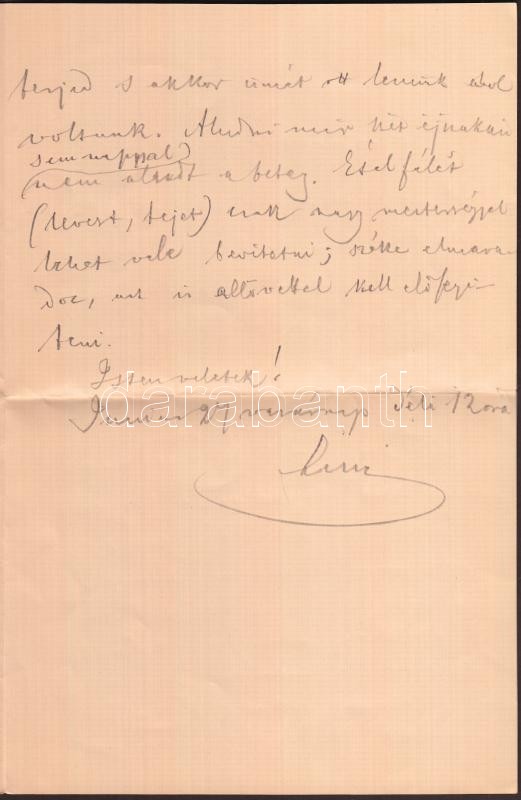 terjed s akkor ismét ott leszünk ahol
voltunk. Aludni már hét éjszakán
sem nappal
nem aludt a beteg. Ételfélét
(levest, tejet) csak nagy mesterséggel
lehet vele bevitetni; széke elmara-
doz, azt is allövettel kell elősegí-
teni.
Isten veletek!
27 vasárnap déli 12 óra
darabanth